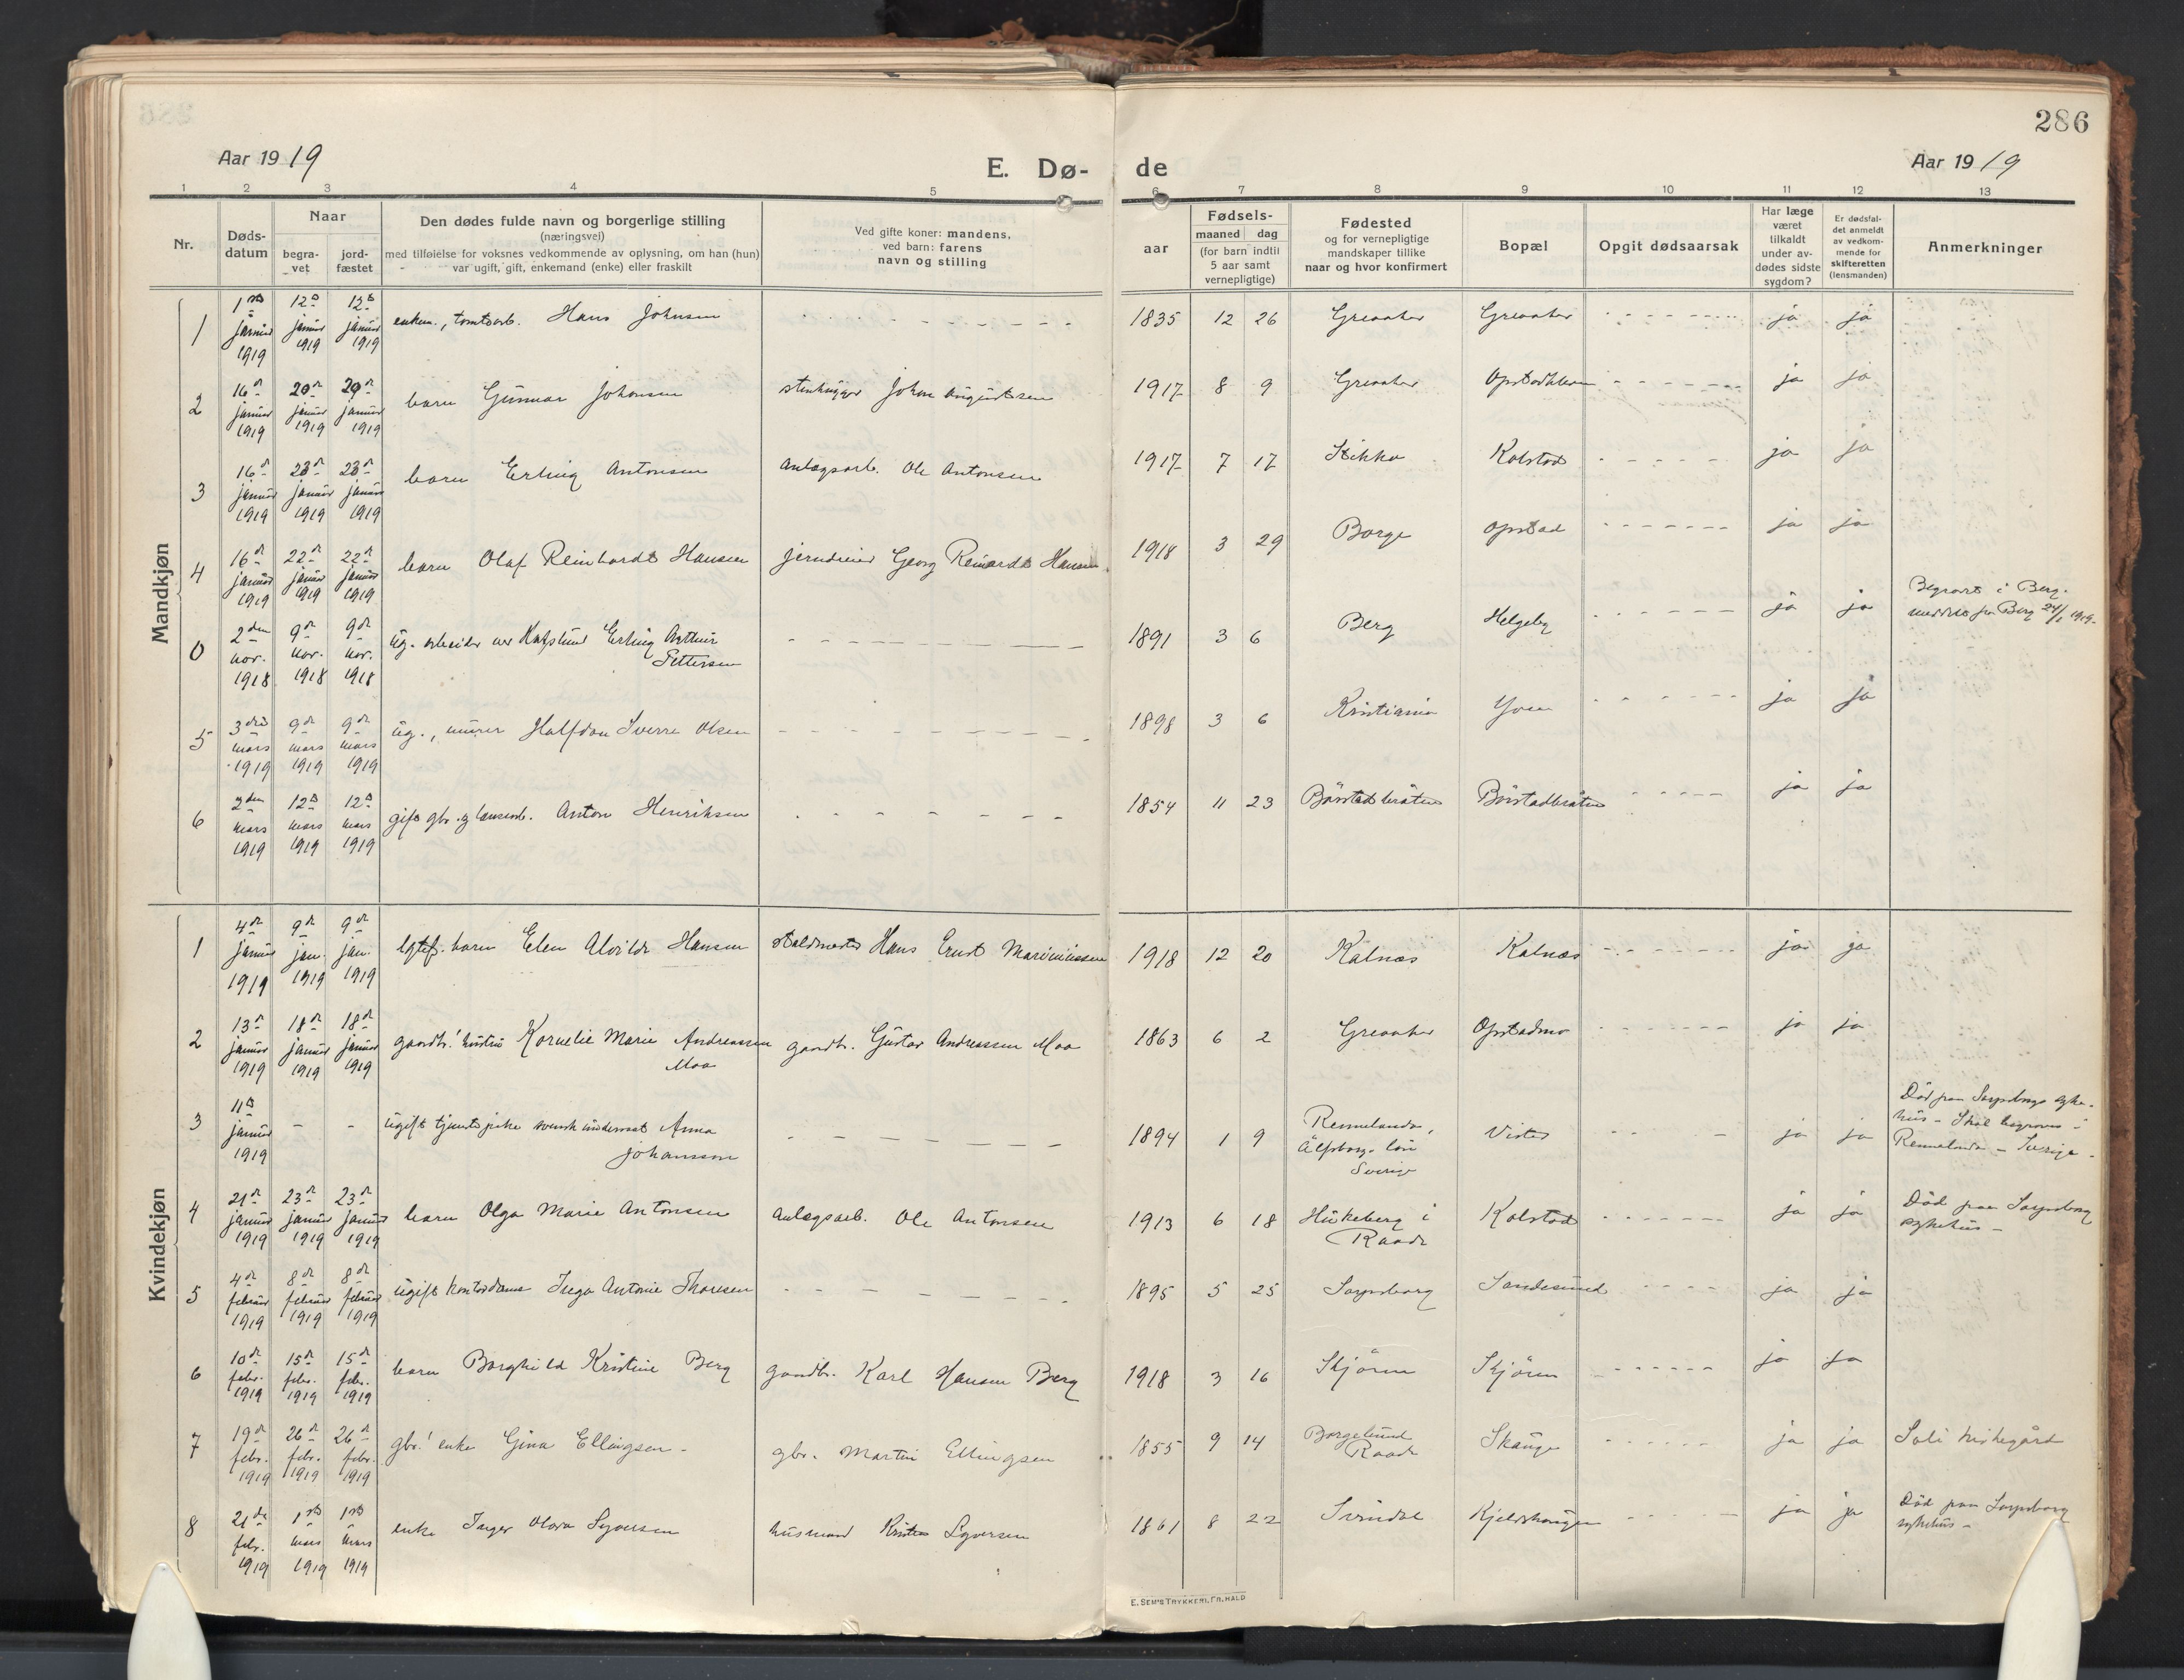 286
Aar 1919
E. Dø-
de
Aar 1919
1 2 3 4 5 6 7 8 9 10 11 12 13
Nr.
Døds-
datum
Naar
begra-
vet
jord-
fæstet
Den dødes fulde navn og borgerlige stilling
(næringsvei)
med tilføielse for voksnes vedkommende av oplysning, om han (hun)
var ugift, gift, enkemand (enke) eller fraskilt
Ved gifte koner: mandens,
ved barn: farens
navn og stilling
aar
Fødsels-
maaned dag
(for barn indtil
5 aar samt
vernepligtige)
Fødested
og for vernepligtige
mandskaper tillike
naar og hvor konfirmert
Bopæl
Opgit dødsaarsak
Har læge
været
tilkaldt
under av-
dødes sidste
sygdom?
Er dødsfal-
det anmeldt
av vedkom-
mende for
skifteretten
(lensmanden)
Anmerkninger
Mandkjøn
1 1ste januar 1919 12te januar 1919 12te januar 1919 enkem., tomtearb. Hans Johnsen 1835 12 26 Greaaker Greaaker ja ja
2 16de januar 1919 20de januar 1919 20de januar 1919 barn Gunnar Johansen stenhugger Johan Augustsen 1917 8 9 Greaaker ja ja
3 16de januar 1919 23de januar 1919 23de januar 1919 barn Erling Antonsen anlægsarb. Ole Antonsen 1917 7 17 Kolstad ja ja
4 16de januar 1919 22de januar 1919 22de januar 1919 barn Olaf Reinhardt Hansen Georg Reinardt Hansen 1918 3 29 Borge Opstad ja ja
0 2den nov. 1918 9de nov. 1918 9de nov. 1918 ug. arbeider ved Hafslund Erling Arthur
Pettersen 1891 3 6 Berg Helgeby ja ja Begravet i Berg.
meddelt fra Berg 24/1 1919.
5 3die mars 1919 9de mars 1919 9de mars 1919 ug., murer Halfdan Sverre Olsen 1898 3 6 Kristiania Yven ja ja
6 2den mars 1919 12te mars 1919 12te mars 1919 gift gbr. og Anton Henriksen 1854 11 23 Börstadbråten Börstadbråten ja ja
Kvindekjøn
1 4de januar 1919 9de jan. 1919 9de jan. 1919 barn Elen Alvilde Hansen staldmester Hans Ernst Mariniussen 1918 12 20 Kalnæs Kalnæs ja ja
2 13de januar 1919 18de januar 1919 18de januar 1919 gaardbr.' hustru Kornelie Marie Andreassen
Moa gaardbr. Gustav Andreassen Moa 1863 6 2 Greaaker Opstadmo ja ja
3 11te januar 1919 - - ugift tjenestepike svensk undersaat Anna
Johansson 1894 1 9 Rennelanda,
Älfsborgs län
Sverige Vister ja ja Död paa Sarpsborgs syke-
hus - Skal begraves i
Rennelanda - Sverige -
4 21de januar 1919 23de januar 1919 23de januar 1919 barn Olga Marie Antonsen anlægsarb. Ole Antonsen 1913 6 18 Hukeberg i
Raade Kolstad ja ja Död paa Sarpsborg
sykehus -
5 4de februar 1919 8de februar 1919 8de februar 1919 ugift kontordame Inga Antonie Thoresen 1895 5 25 Sarpsborg Sandesund ja ja
6 10de febr. 1919 15de febr. 1919 15de febr. 1919 barn Borghild Kristine Berg gaardbr. Karl Hansen Berg 1918 3 16 Skjören Skjören ja ja
7 19de febr. 1919 26de febr. 1919 26de febr. 1919 gbr.' enke Gina Ellingsen - gbr. Martin Ellingsen 1855 9 14 Borgelund
Raade ja ja Soli kirkegård
8 21de febr. 1919 1ste mars 1919 1ste mars 1919 enke Inger Olava Syversen husmand Kristen Syversen 1861 8 22 Svindal Kjelshaugen ja ja Död paa Sarpsborg
sykehus -
E. SEM'S TRYKKERI, FR.HALD